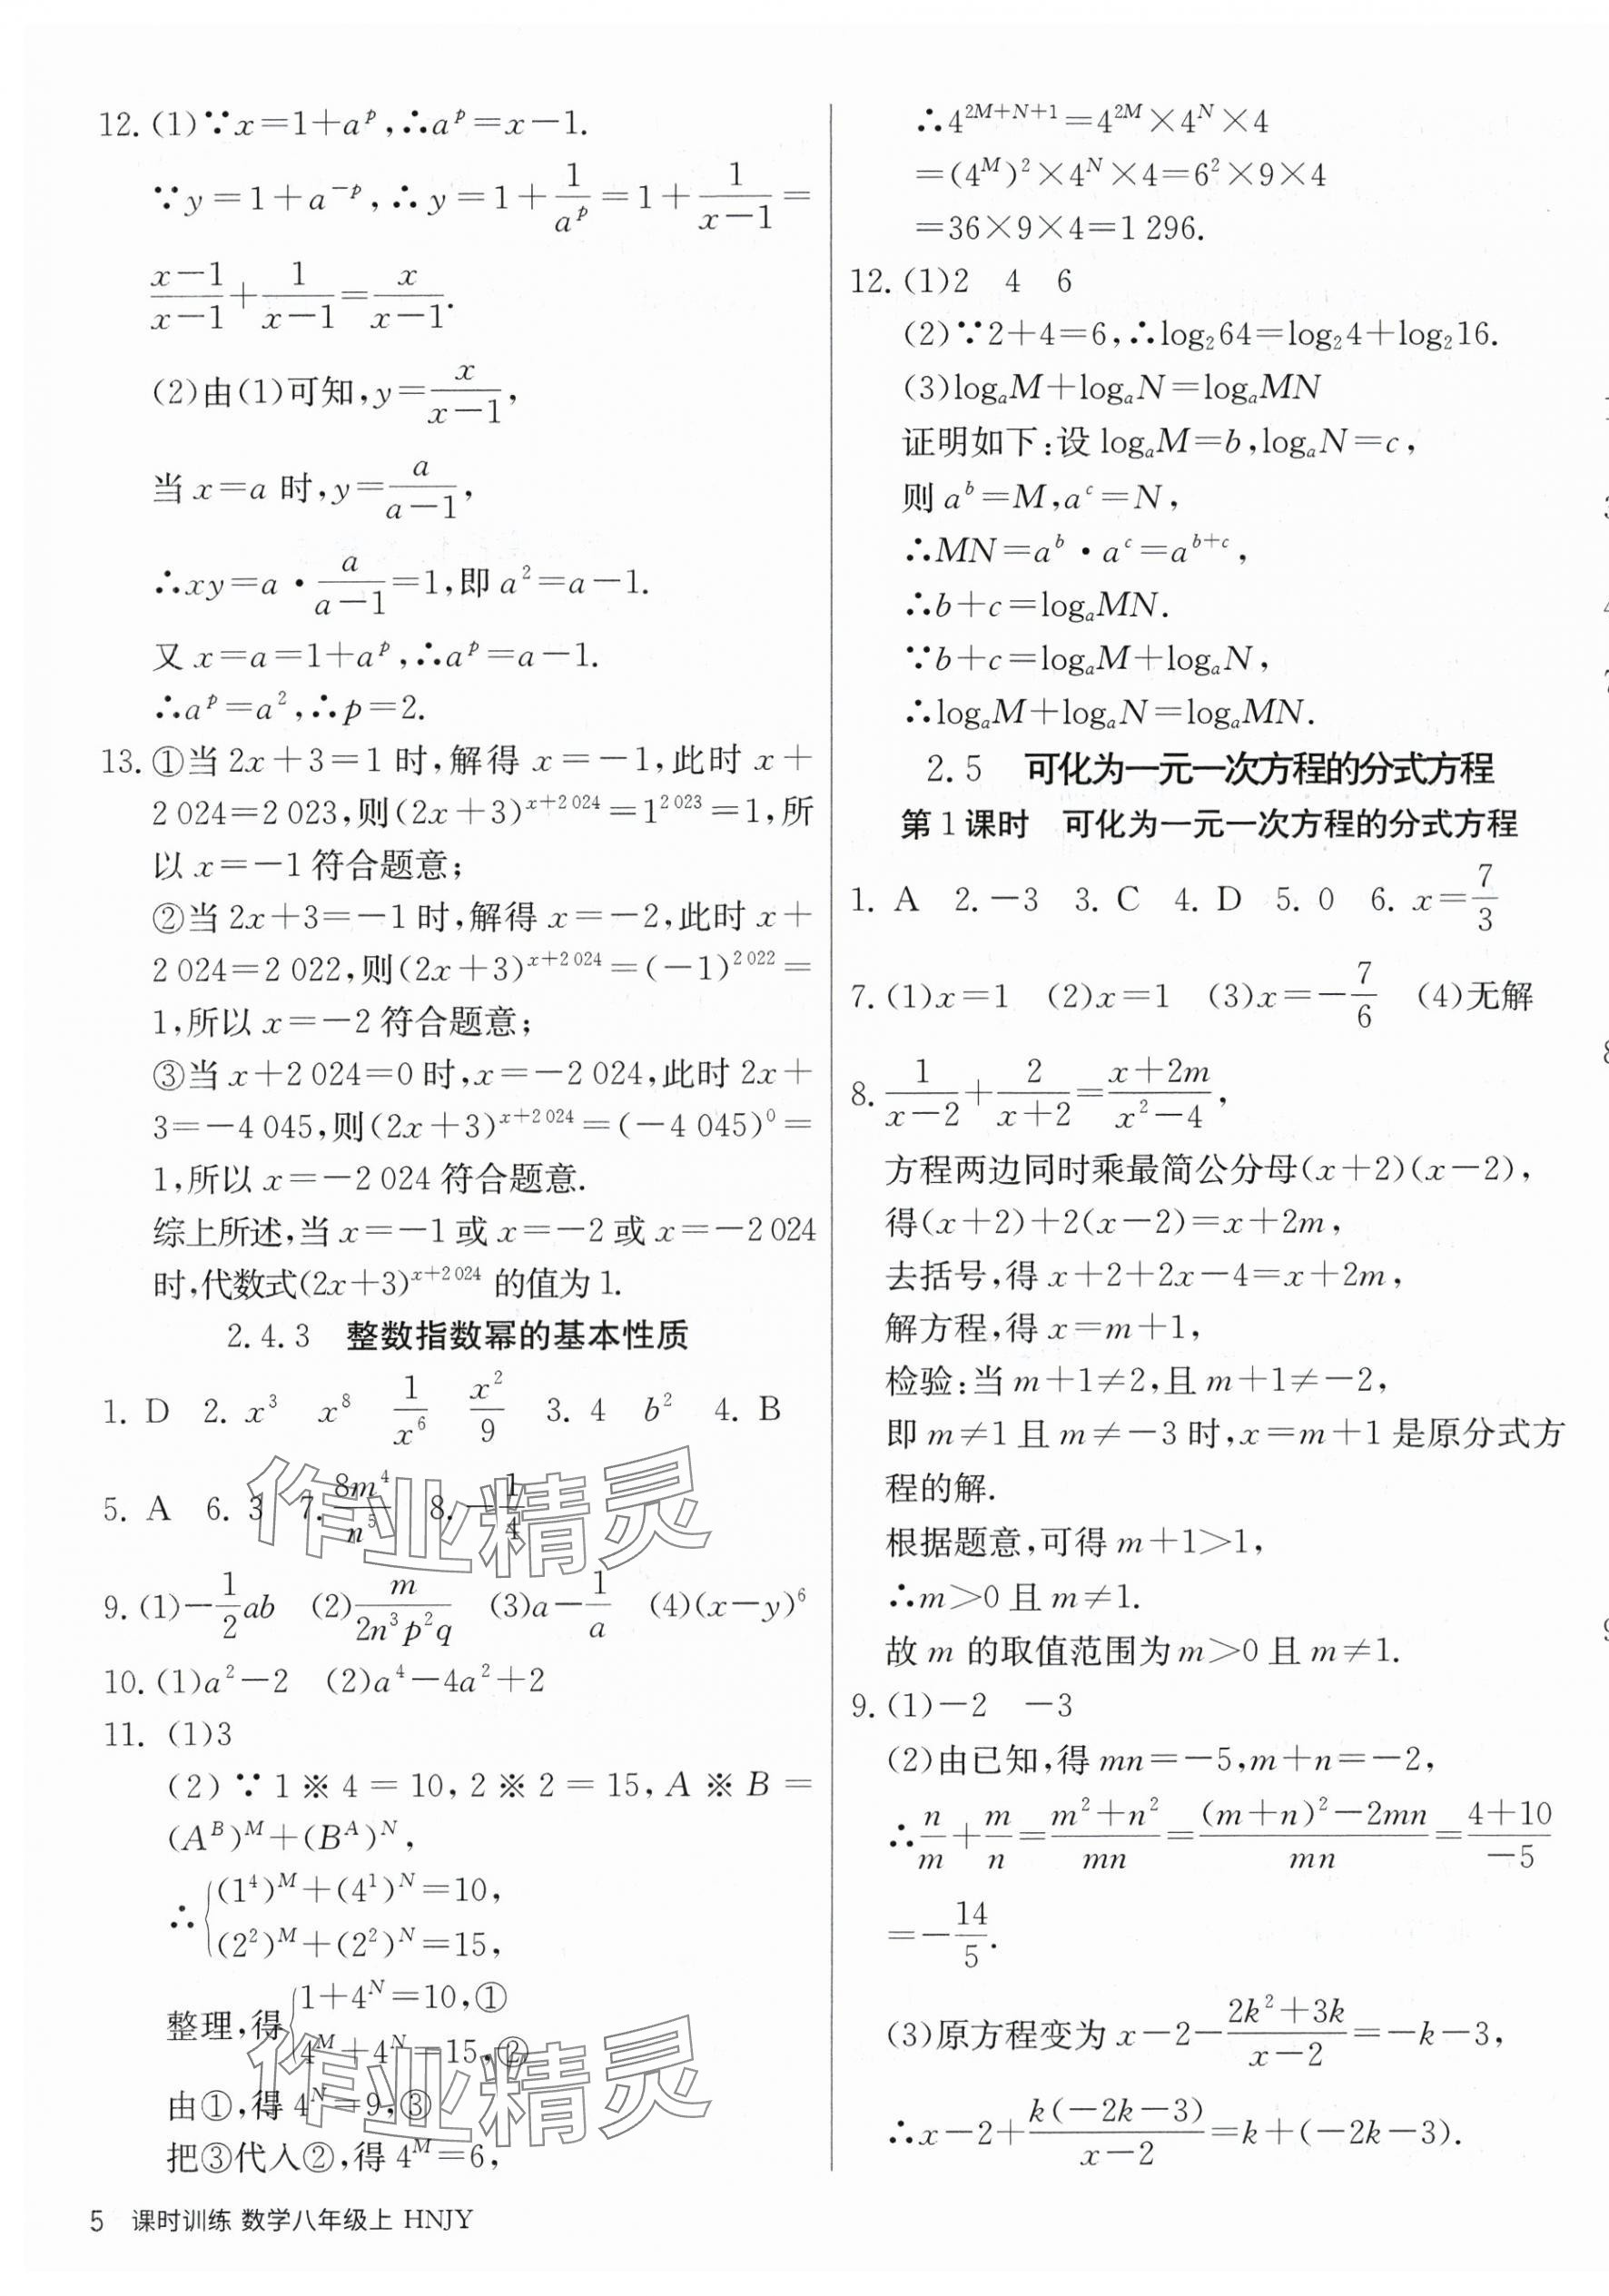 12. (1)∵x=1+a^p,∴a^p=x-1.
∵y=1+a^{-p},∴y=1+\frac{1}{a^p}=1+\frac{1}{x-1}=
\frac{x-1}{x-1}+\frac{1}{x-1}=\frac{x}{x-1}.
(2)由(1)可知,y=\frac{x}{x-1},
当 x=a 时,y=\frac{a}{a-1},
∴xy=a·\frac{a}{a-1}=1,即 a^2=a-1.
又 x=a=1+a^p,∴a^p=a-1.
∴a^p=a^2,∴p=2.
13. ①当 2x+3=1 时,解得 x=-1,此时 x+
2 024=2 023,则(2x+3)^{x+2 024}=1^{2 023}=1,所
以 x=-1 符合题意;
②当 2x+3=-1 时,解得 x=-2,此时 x+
2 024=2 022,则(2x+3)^{x+2 024}=(-1)^{2 022}=
1,所以 x=-2 符合题意;
③当 x+2 024=0 时,x=-2 024,此时 2x+
3=-4 045,则(2x+3)^{x+2 024}=(-4 045)^0=
1,所以 x=-2 024 符合题意.
综上所述,当 x=-1 或 x=-2 或 x=-2 024
时,代数式(2x+3)^{x+2 024} 的值为 1.
2.4.3 整数指数幂的基本性质
1. D 2. x^3 x^8 \frac{1}{x^6} \frac{x^2}{9} 3. 4 b^2 4. B
5. A 6. 3 7. \frac{8m^4}{n^5} 8. -\frac{1}{4}
9. (1)-\frac{1}{2}ab (2)\frac{m}{2n^3p^2q} (3)a-\frac{1}{a} (4)(x-y)^6
10. (1)a^2-2 (2)a^4-4a^2+2
11. (1)3
(2)∵1※4=10,2※2=15,A※B=
(A^B)^M+(B^A)^N,
∴{(1^4)^M+(4^1)^N=10,
(2^2)^M+(2^2)^N=15,
整理,得{1+4^N=10,①
4^M+4^N=15,②
由①,得 4^N=9,③
把③代入②,得 4^M=6,
5 课时训练 数学八年级上 HNJY
∴4^{2M+N+1}=4^{2M}×4^N×4
=(4^M)^2×4^N×4=6^2×9×4
=36×9×4=1 296.
12. (1)2 4 6
(2)∵2+4=6,∴log_2 64=log_2 4+log_2 16.
(3)log_a M+log_a N=log_a MN
证明如下:设 log_a M=b,log_a N=c,
则 a^b=M,a^c=N,
∴MN=a^b·a^c=a^{b+c},
∴b+c=log_a MN.
∵b+c=log_a M+log_a N,
∴log_a M+log_a N=log_a MN.
2.5 可化为一元一次方程的分式方程
第 1 课时 可化为一元一次方程的分式方程
1. A 2. -3 3. C 4. D 5. 0 6. x=\frac{7}{3}
7. (1)x=1 (2)x=1 (3)x=-\frac{7}{6} (4)无解
8. \frac{1}{x-2}+\frac{2}{x+2}=\frac{x+2m}{x^2-4},
方程两边同时乘最简公分母(x+2)(x-2),
得(x+2)+2(x-2)=x+2m,
去括号,得 x+2+2x-4=x+2m,
解方程,得 x=m+1,
检验:当 m+1≠2,且 m+1≠-2,
即 m≠1 且 m≠-3 时,x=m+1 是原分式方
程的解.
根据题意,可得 m+1>1,
∴m>0 且 m≠1.
故 m 的取值范围为 m>0 且 m≠1.
9. (1)-2 -3
(2)由已知,得 mn=-5,m+n=-2,
∴\frac{n}{m}+\frac{m}{n}=\frac{m^2+n^2}{mn}=\frac{(m+n)^2-2mn}{mn}=\frac{4+10}{-5}
=-\frac{14}{5}.
(3)原方程变为 x-2-\frac{2k^2+3k}{x-2}=-k-3,
∴x-2+\frac{k(-2k-3)}{x-2}=k+(-2k-3).
作业精灵
作业精灵